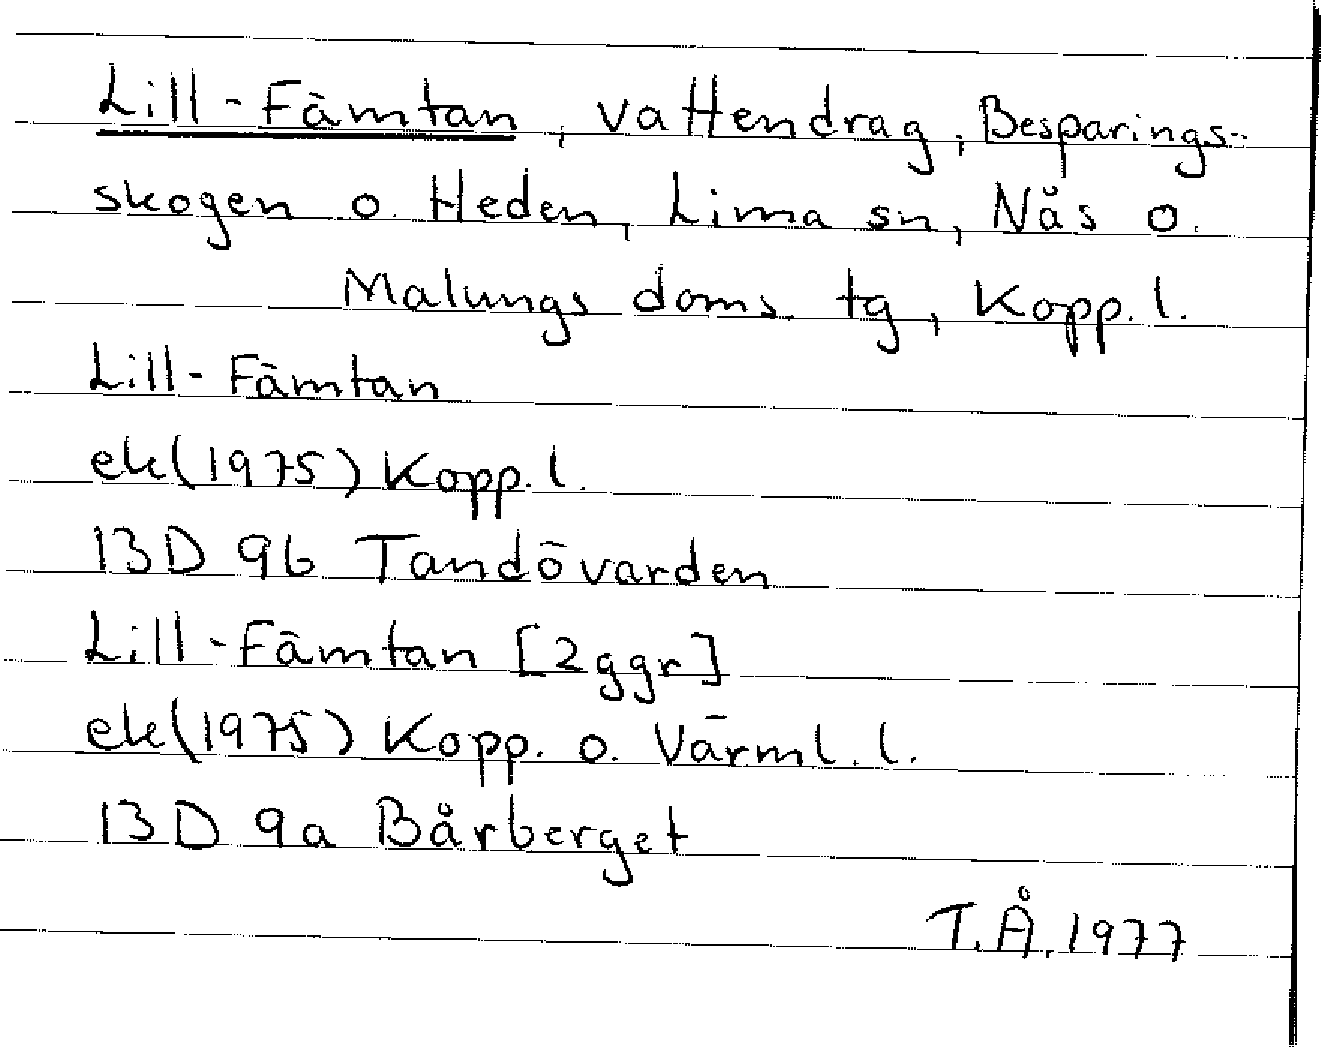 Lill-Fämtan, vattendrag, Besparings-
skogen o. Heden, Lima sn, Nås o.
Malungs doms. tg, Kopp. l.
Lill-Fämtan
ek(1975) Kopp. l.
13D 9b Tandövarden
Lill-Fämtan [2ggr]
ek(1975) Kopp. o. Värml. l.
13D 9a Bårberget
T.Å. 1977